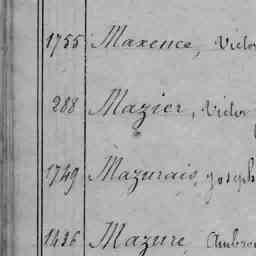 1755 Maxence, Victo
288 Mazier, Victor
1749 Mazurais, Joseph
1436 Mazure, Ambro